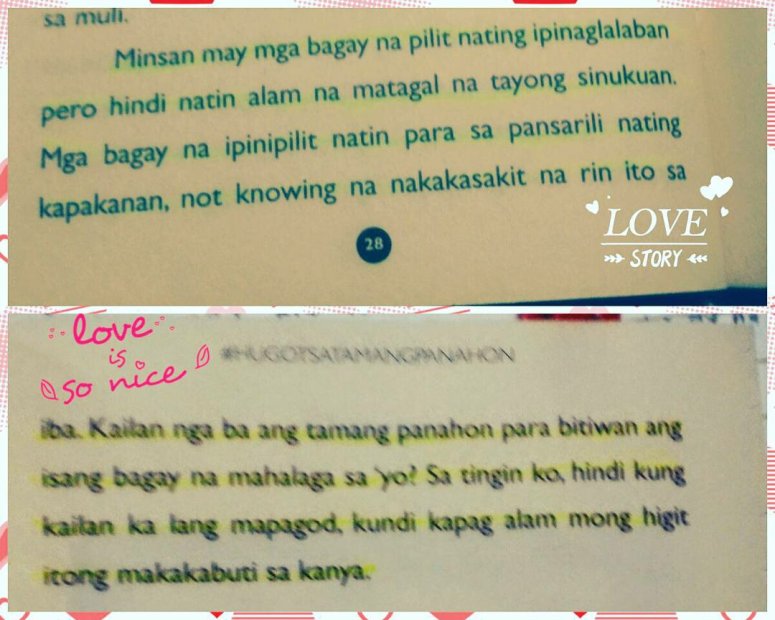 sa muli.
Minsan may mga bagay na pilit nating ipinaglalaban
pero hindi natin alam na matagal na tayong sinukuan.
Mga bagay na ipinipilit natin para sa pansarili nating
kapakanan, not knowing na nakakasakit na rin ito sa
28
LOVE
STORY
love
is
so nice
#HUGOTSATAMANGPANAHON
iba. Kailan nga ba ang tamang panahon para bitiwan ang
isang bagay na mahalaga sa 'yo? Sa tingin ko, hindi kung
kailan ka lang mapagod, kundi kapag alam mong higit
itong makakabuti sa kanya.